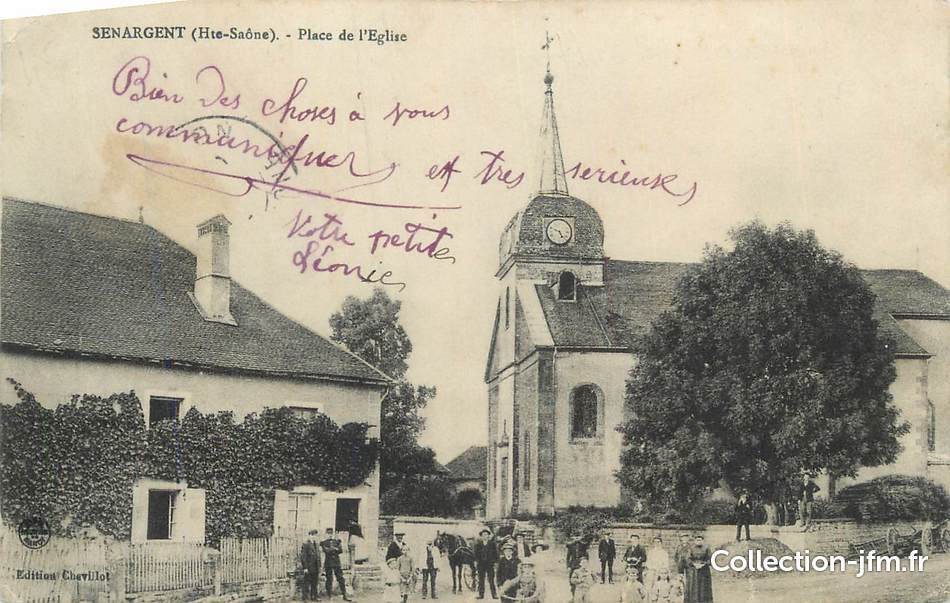 SENARGENT (Hte-Saône). - Place de l'Eglise
Bien des choses à vous
communiquer et tres serieuses
Votre petite
Léonie
Edition Chevillot
Collection-jfm.fr